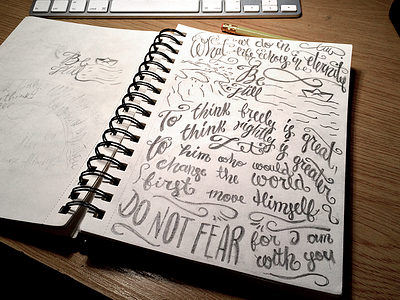 Be
Full
What we do in
life echoes in eternity
Be
Full
To think freely is great,
To think rightly is greater
to him who would
change the world
first move Himself.
DO NOT FEAR
for I am
with you